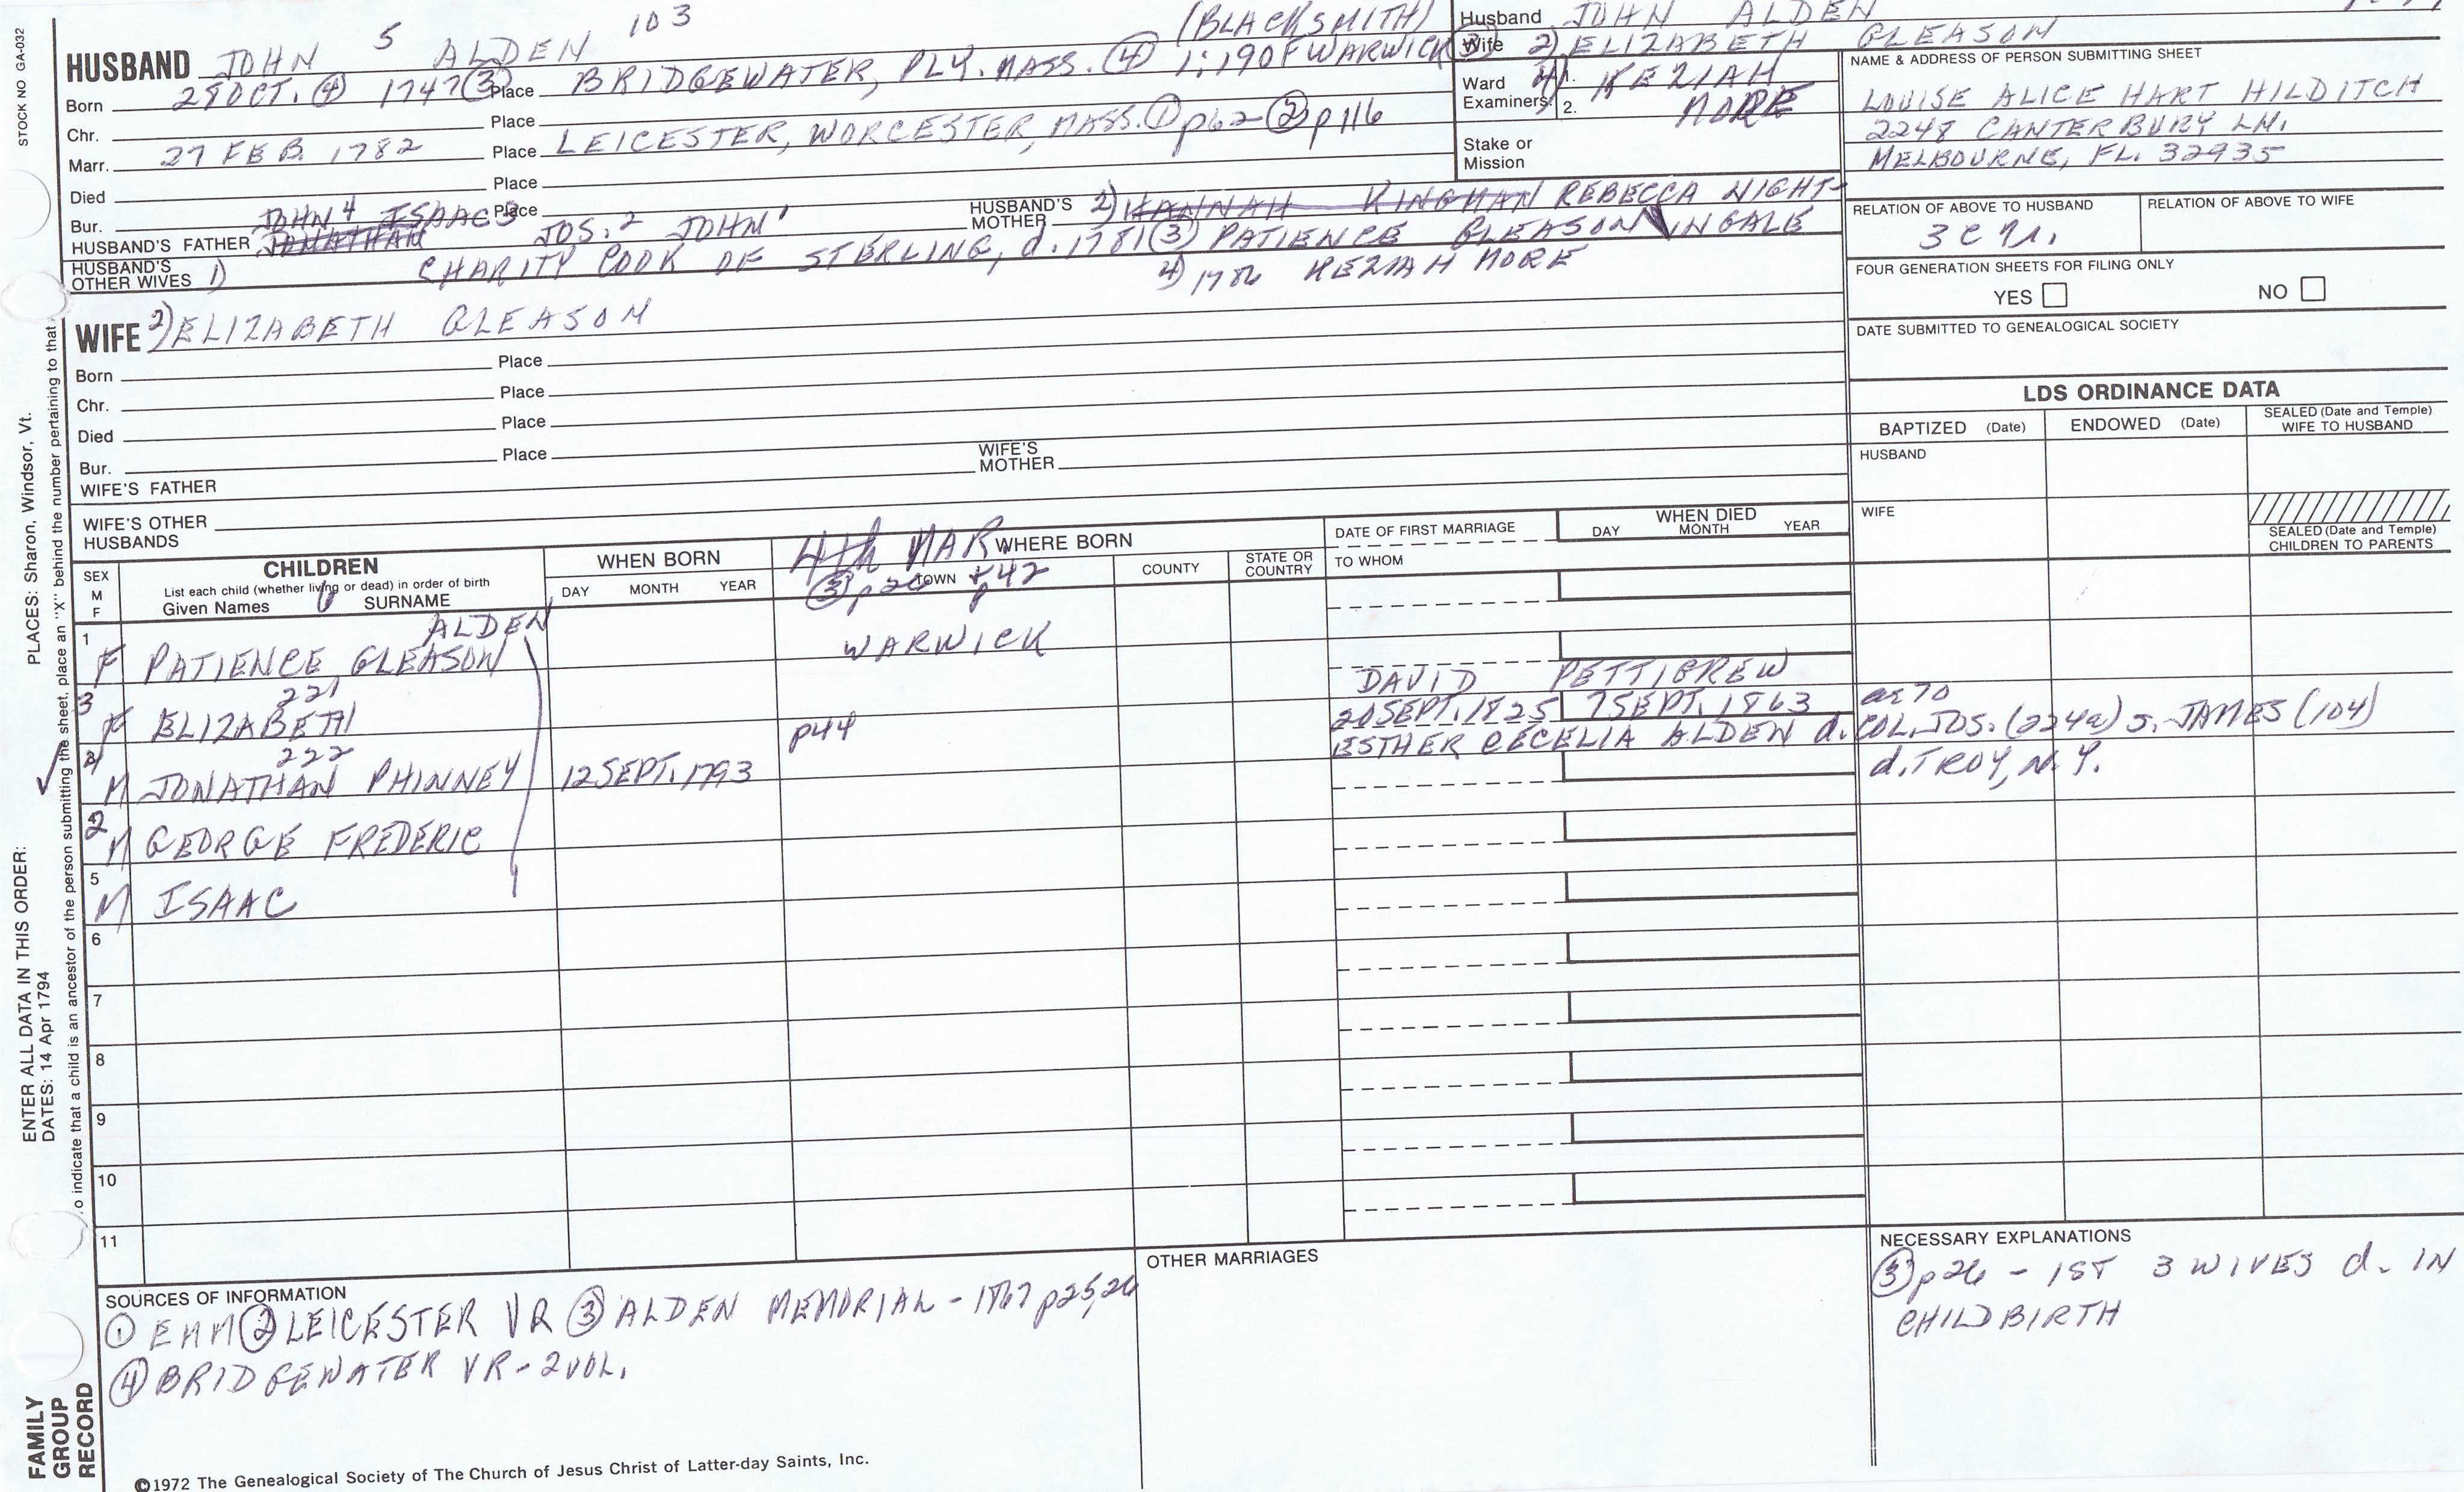 STOCK NO GA-032
PLACES: Sharon, Windsor, Vt.
ENTER ALL DATA IN THIS ORDER:
DATES: 14 Apr 1794
o indicate that a child is an ancestor of the person submitting the sheet, place an "X" behind the number pertaining to that
FAMILY GROUP RECORD
HUSBAND JOHN 5 ALDEN 103 (BLACKSMITH)
Born 28 OCT. ④ 1747 ③ Place BRIDGEWATER, PLY. MASS. ④ 1:190F WARWICK ③
Chr. Place
Marr. 27 FEB. 1782 Place LEICESTER, WORCESTER, MASS. ① p62 - ② p116
Died Place
Bur. Place
HUSBAND'S FATHER JOHN 4 ISAAC 3 JONATHAN JOS. 2 JOHN 1
HUSBAND'S MOTHER 2) HANNAH KINGMAN REBECCA NIGHT-
INGALE
HUSBAND'S OTHER WIVES 1) CHARITY COOK OF STERLING, d. 1781 (3) PATIENCE GLEASON
4) 1786 KEZIAH MORE
Husband JOHN ALDEN
Wife 2) ELIZABETH GLEASON
Ward Examiners: 1. 4) KEZIAH
2. MORE
Stake or Mission
NAME & ADDRESS OF PERSON SUBMITTING SHEET
LOUISE ALICE HART HILDITCH
2248 CANTERBURY LN.
MELBOURNE, FL. 32935
RELATION OF ABOVE TO HUSBAND
RELATION OF ABOVE TO WIFE
FOUR GENERATION SHEETS FOR FILING ONLY
YES NO
DATE SUBMITTED TO GENEALOGICAL SOCIETY
WIFE 2) ELIZABETH GLEASON
Born Place
Chr. Place
Died Place
Bur. Place
WIFE'S FATHER
WIFE'S MOTHER
WIFE'S OTHER HUSBANDS
LDS ORDINANCE DATA
BAPTIZED (Date) ENDOWED (Date) SEALED (Date and Temple) WIFE TO HUSBAND
HUSBAND
WIFE
SEALED (Date and Temple) CHILDREN TO PARENTS
SEX M F
CHILDREN
List each child (whether living or dead) in order of birth
Given Names 6 SURNAME
WHEN BORN
DAY MONTH YEAR
4th MAR WHERE BORN
③ p26 TOWN p42
COUNTY
STATE OR COUNTRY
DATE OF FIRST MARRIAGE
TO WHOM
WHEN DIED
DAY MONTH YEAR
ALDEN
1 F PATIENCE GLEASON WARWICK
221
3 F ELIZABETH DAVID PETTIGREW
222
4 M JONATHAN PHINNEY 12 SEPT. 1793 p44 20 SEPT. 1825 7 SEPT. 1863 ae 70
ESTHER CECELIA ALDEN d. COL. JOS. (224a) s. JAMES (104)
d. TROY, N.Y.
2 M GEORGE FREDERIC
5 M ISAAC
6
7
8
9
10
11
SOURCES OF INFORMATION
① EAM ② LEICESTER VR ③ ALDEN MEMORIAL - 1867 p25,26
④ BRIDGEWATER VR - 2 VOL.
OTHER MARRIAGES
NECESSARY EXPLANATIONS
③ p26 - 1ST 3 WIVES d. IN
CHILDBIRTH
©1972 The Genealogical Society of The Church of Jesus Christ of Latter-day Saints, Inc.